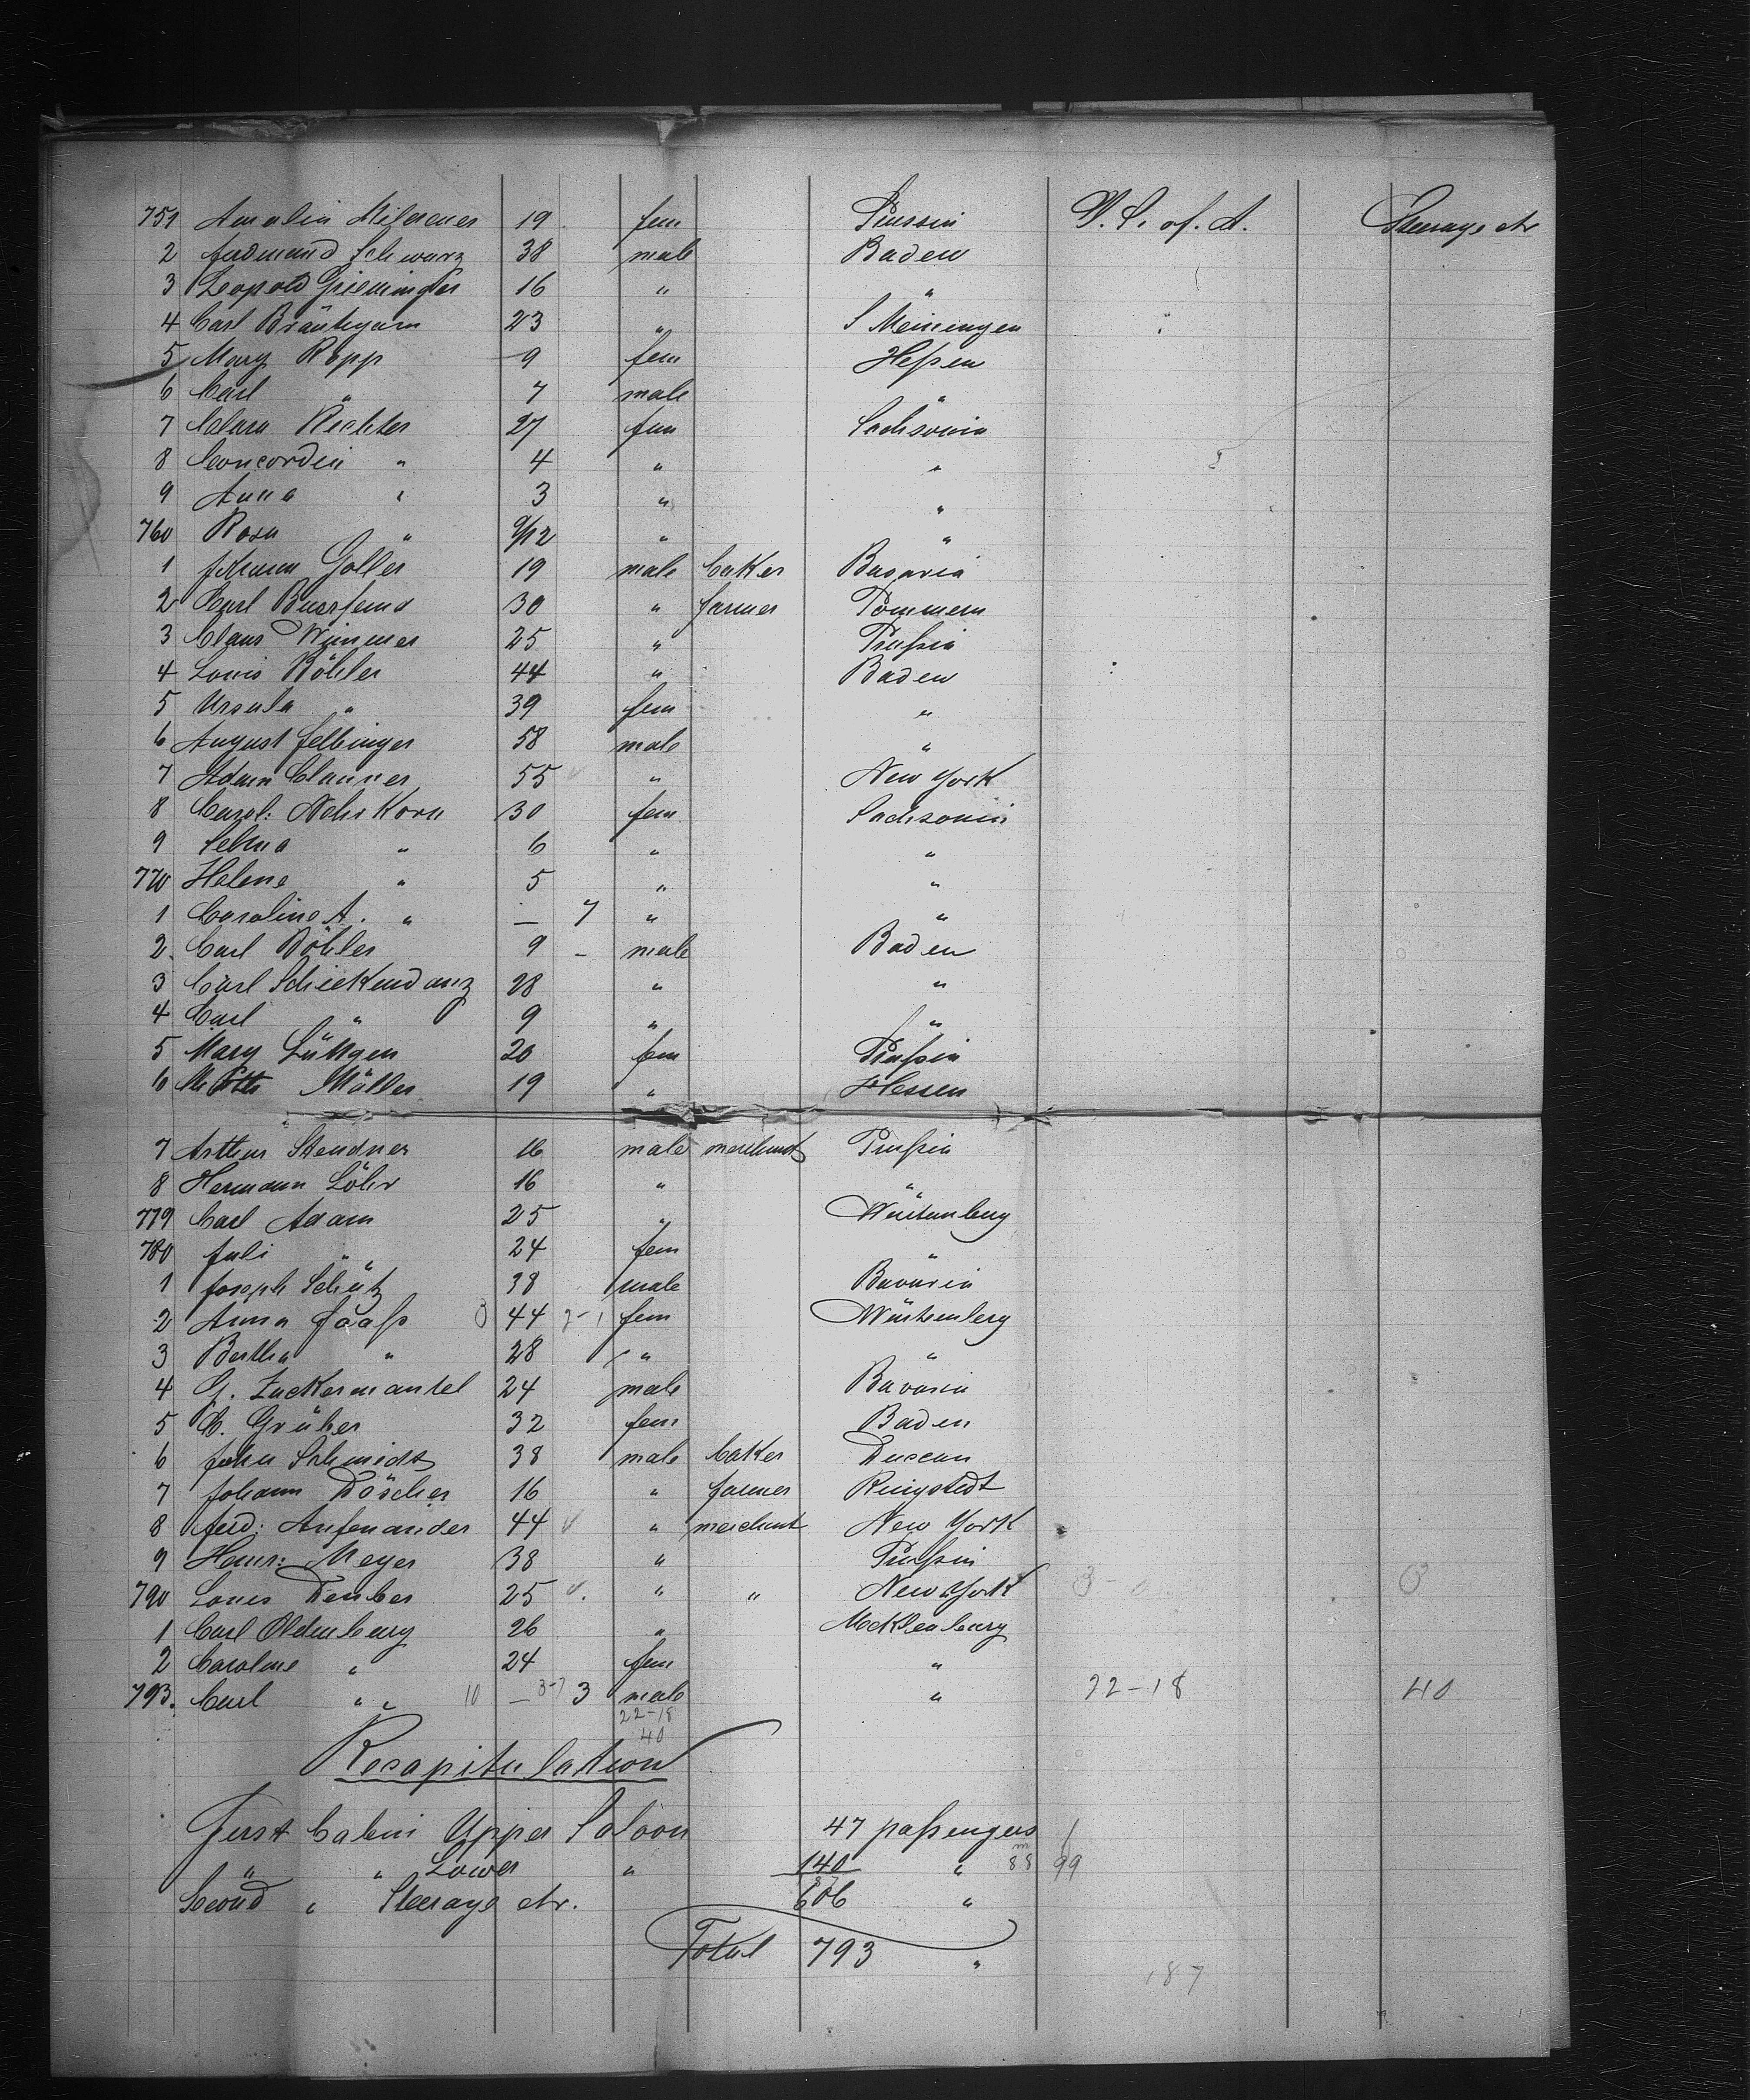 751 Amalia Mildener 19 fem Prussia U. S. of. A. Steerage etc
2 Ferdinand Schwarz 38 male Baden
3 Leopold Grieninger 16 " "
4 Carl Bräutigam 23 " S Meiningen
5 Mary Ropp 9 fem Heßen
6 Carl " 7 male "
7 Clara Richter 27 fem Sachsonia
8 Concordia " 4 " "
9 Anna " 3 " "
760 Rosa " 9/12 " "
1 Johann Goller 19 male baker Bavaria
2 Carl 30 " farmer Pommern
3 Claus Wimmer 25 " Prußia
4 Louis Böhler 44 " Baden
5 Ursula " 39 fem "
6 August Felbinger 58 male "
7 Adam Clauner 55 " New York
8 Carol: Nehrkorn 30 fem Sachsonia
9 Selma " 6 " "
770 Helene " 5 " "
1 Caroline A. " — 7 " "
2. Carl Böhler 9 - male Baden
3 Carl Schickendanz 28 " "
4 Carl " 9 " "
5 Mary Lüttgen 20 fem Prußia
6 Müller 19 " Hessen
7 Arthur Steudner 16 male merchant Prußia
8 Hermann Löhr 16 " "
779 Carl Adam 25 " Würtemberg
780 Juli " 24 fem "
1 Joseph Schütz 38 male Bavaria
2 Anna Haaß 44 fem Würtemberg
3 Bertha " 28 " "
4 G. Zuckermantel 24 male Bavaria
5 C. Grüber 32 fem Baden
6 John Schmidt 38 male baker
7 Johann Döscher 16 " farmer Ringstedt
8 Ferd: Aufenander 44 " merchant New York
9 Heinr: Meyer 38 " Prußia
790 Louis Dember 25 " " New York
1 Carl Oldenburg 26 " Mecklenburg
2 Caroline " 24 fem "
793. Carl " 10 — 3 male " 22-18 40
22-18
40
Recapitulation
First Cabin Upper Saloon 47 paßengers
" " Lower " 140 " 88 99
Second " Steerage etc. 606 "
Total 793 "
187